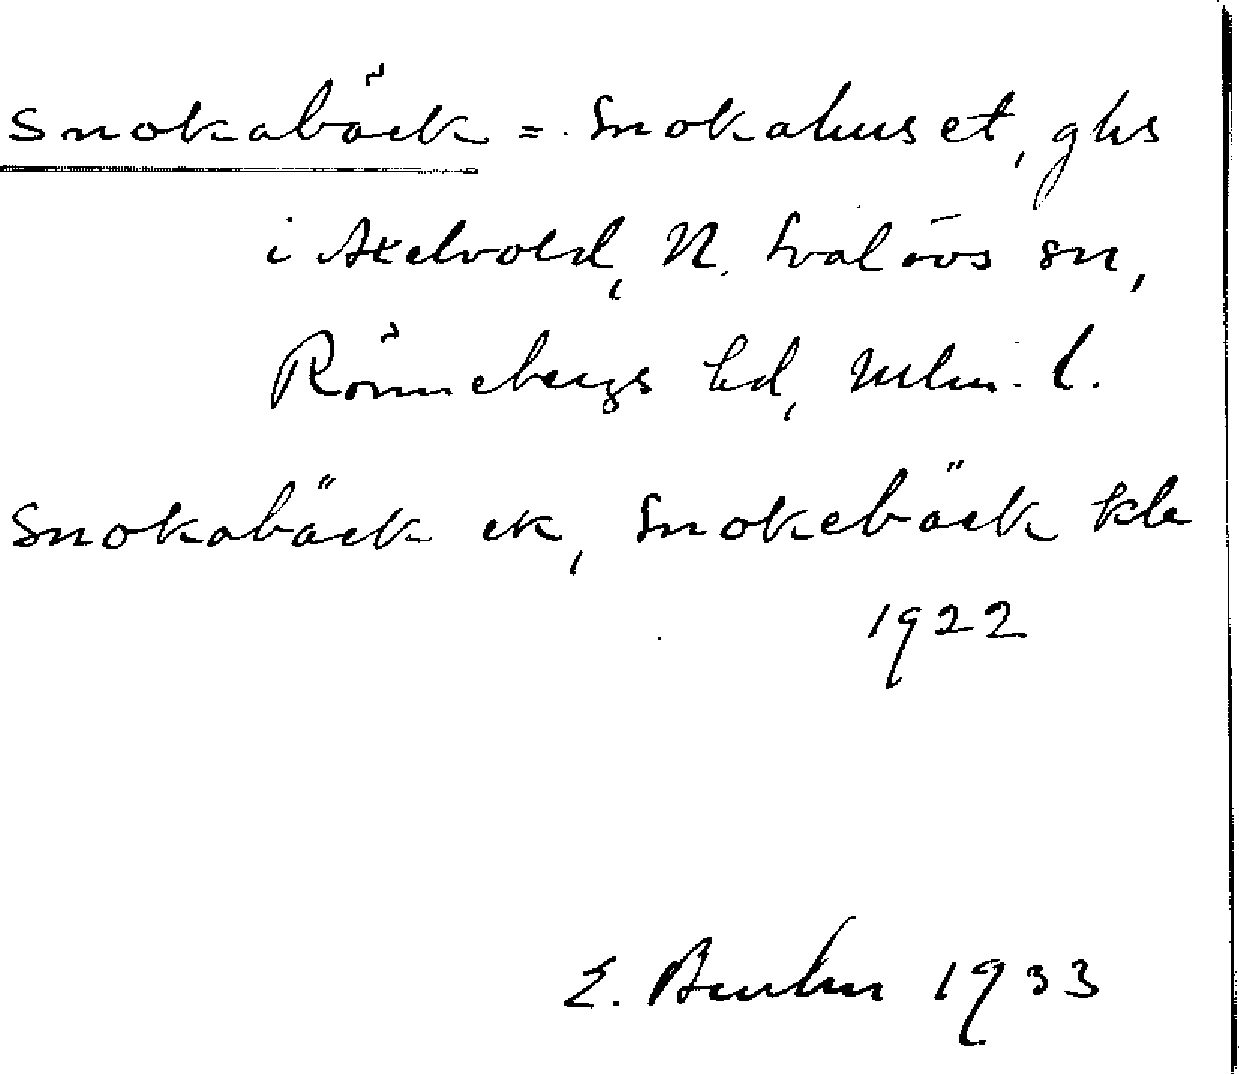 Snokabäck = Snokahuset, ghs
i Axelvold, N. Svalövs sn,
Rönnebergs hd, Mlm. l.
Snokabäck ek, Snokebäck kla
1922
E. 1933